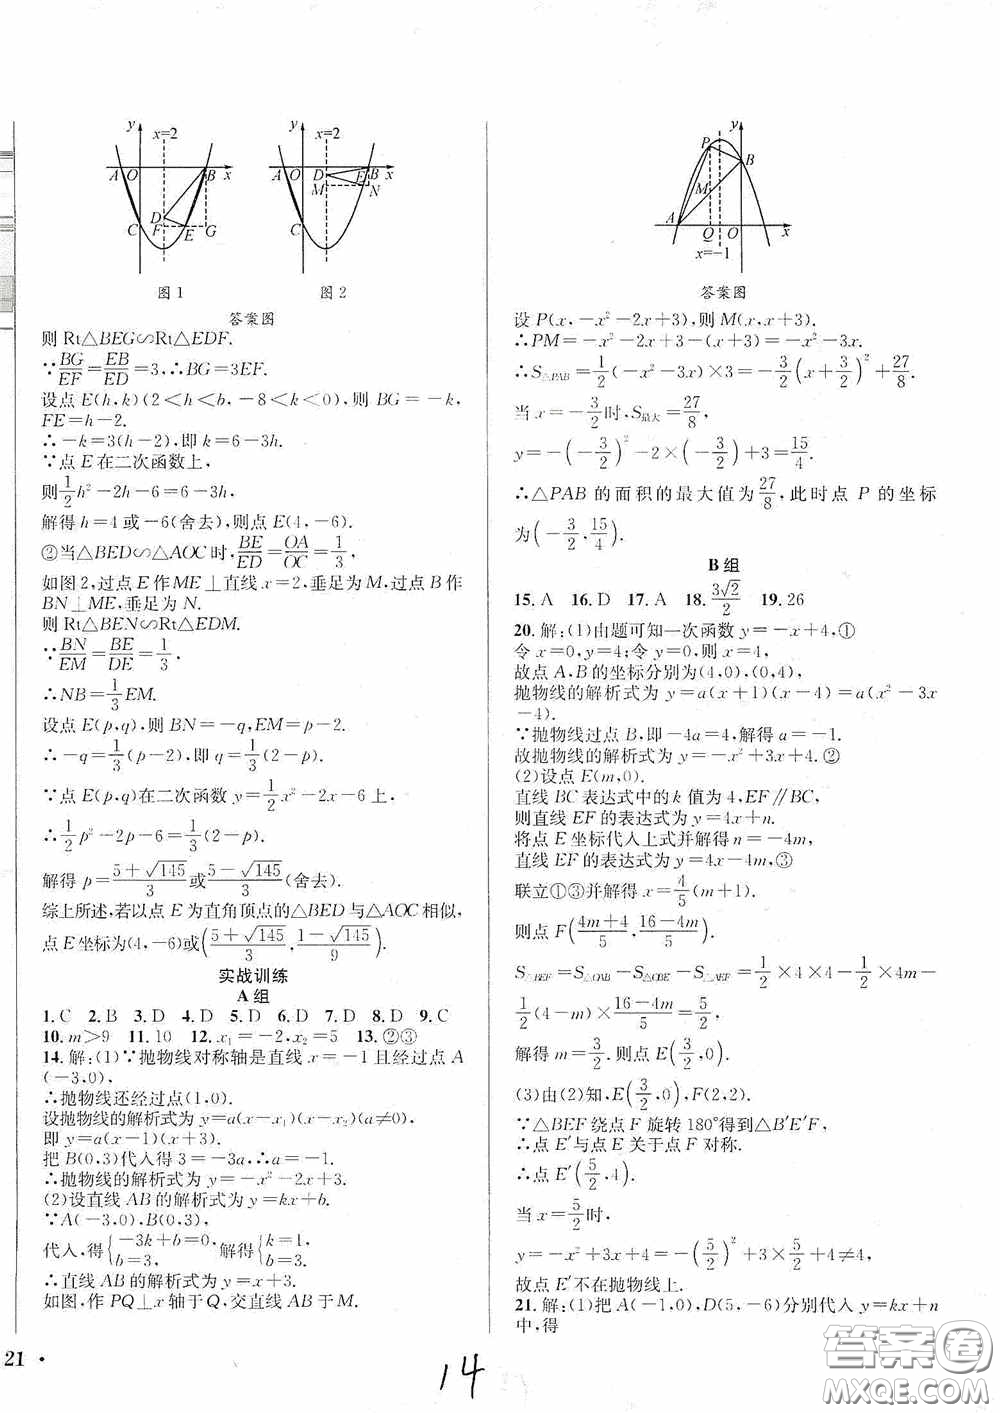 y
x=2
A O B x
D
C F E G
图1
y
x=2
A O D E B x
M N
C
图2
答案图
则 Rt△BEG∽Rt△EDF.
∵BG/EF=EB/ED=3,∴BG=3EF.
设点 E(h,k)(2<h<b,-8<k<0),则 BG=-k,
FE=h-2.
∴-k=3(h-2),即 k=6-3h.
∵点 E 在二次函数上,
则1/2h²-2h-6=6-3h,
解得 h=4 或-6(舍去),则点 E(4,-6).
②当△BED∽△AOC 时,BE/ED=OA/OC=1/3,
如图 2,过点 E 作 ME⊥直线 x=2,垂足为 M,过点 B 作
BN⊥ME,垂足为 N.
则 Rt△BEN∽Rt△EDM.
∵BN/EM=BE/DE=1/3.
∴NB=1/3EM.
设点 E(p,q),则 BN=-q,EM=p-2.
∴-q=1/3(p-2),即 q=-1/3(p-2).
∵点 E(p,q)在二次函数 y=1/2x²-2x-6 上,
∴1/2p²-2p-6=-1/3(p-2).
解得 p=(5+√145)/3或(5-√145)/3(舍去).
综上所述,若以点 E 为直角顶点的△BED 与△AOC 相似,
点 E 坐标为(4,-6)或((5+√145)/3,(1-√145)/9).
实战训练
A 组
1. C 2. B 3. D 4. D 5. D 6. D 7. D 8. D 9. C
10. m>9 11. 10 12. x₁=-2,x₂=5 13. ②③
14. 解:(1)∵抛物线对称轴是直线 x=-1 且经过点 A
(-3,0),
∴抛物线还经过点(1,0).
设抛物线的解析式为 y=a(x-x₁)(x-x₂)(a≠0),
即 y=a(x-1)(x+3).
把 B(0,3)代入得 3=-3a,∴a=-1.
∴抛物线的解析式为 y=-x²-2x+3.
(2)设直线 AB 的解析式为 y=kx+b.
∵A(-3,0),B(0,3),
代入,得{-3k+b=0, b=3, 解得{k=1, b=3.
∴直线 AB 的解析式为 y=x+3.
如图,作 PQ⊥x 轴于 Q,交直线 AB 于 M.
21 •
y
P
B
M
A Q O x
x=-1
答案图
设 P(x,-x²-2x+3),则 M(x,x+3).
∴PM=-x²-2x+3-(x+3)=-x²-3x.
∴S△PAB=1/2(-x²-3x)×3=-3/2(x+3/2)²+27/8.
当 x=-3/2时,S最大=27/8,
y=-(-3/2)²-2×(-3/2)+3=15/4.
∴△PAB 的面积的最大值为27/8,此时点 P 的坐标
为(-3/2,15/4).
B 组
15. A 16. D 17. A 18. 3√2/2 19. 26
20. 解:(1)由题可知一次函数 y=-x+4,①
令 x=0,y=4;令 y=0,则 x=4,
故点 A、B 的坐标分别为(4,0),(0,4),
抛物线的解析式为 y=a(x+1)(x-4)=a(x²-3x
-4).
∵抛物线过点 B,即-4a=4,解得 a=-1.
故抛物线的解析式为 y=-x²+3x+4.②
(2)设点 E(m,0).
直线 BC 表达式中的 k 值为 4,EF∥BC,
则直线 EF 的表达式为 y=4x+n.
将点 E 坐标代入上式并解得 n=-4m,
直线 EF 的表达式为 y=4x-4m,③
联立①③并解得 x=4/5(m+1).
则点 F((4m+4)/5,(16-4m)/5).
S△BEF=S△OAB-S△OBE-S△AEF=1/2×4×4-1/2×4m-
1/2(4-m)×(16-4m)/5=5/2,
解得 m=3/2.则点 E(3/2,0).
(3)由(2)知,E(3/2,0),F(2,2).
∵△BEF 绕点 F 旋转 180°得到△B′E′F,
∴点 E′与点 E 关于点 F 对称.
∴点 E′(5/2,4).
当 x=5/2时,
y=-x²+3x+4=-(5/2)²+3×5/2+4≠4,
故点 E′不在抛物线上.
21. 解:(1)把 A(-1,0),D(5,-6)分别代入 y=kx+n
中,得
14
答案圈
MXQE.COM